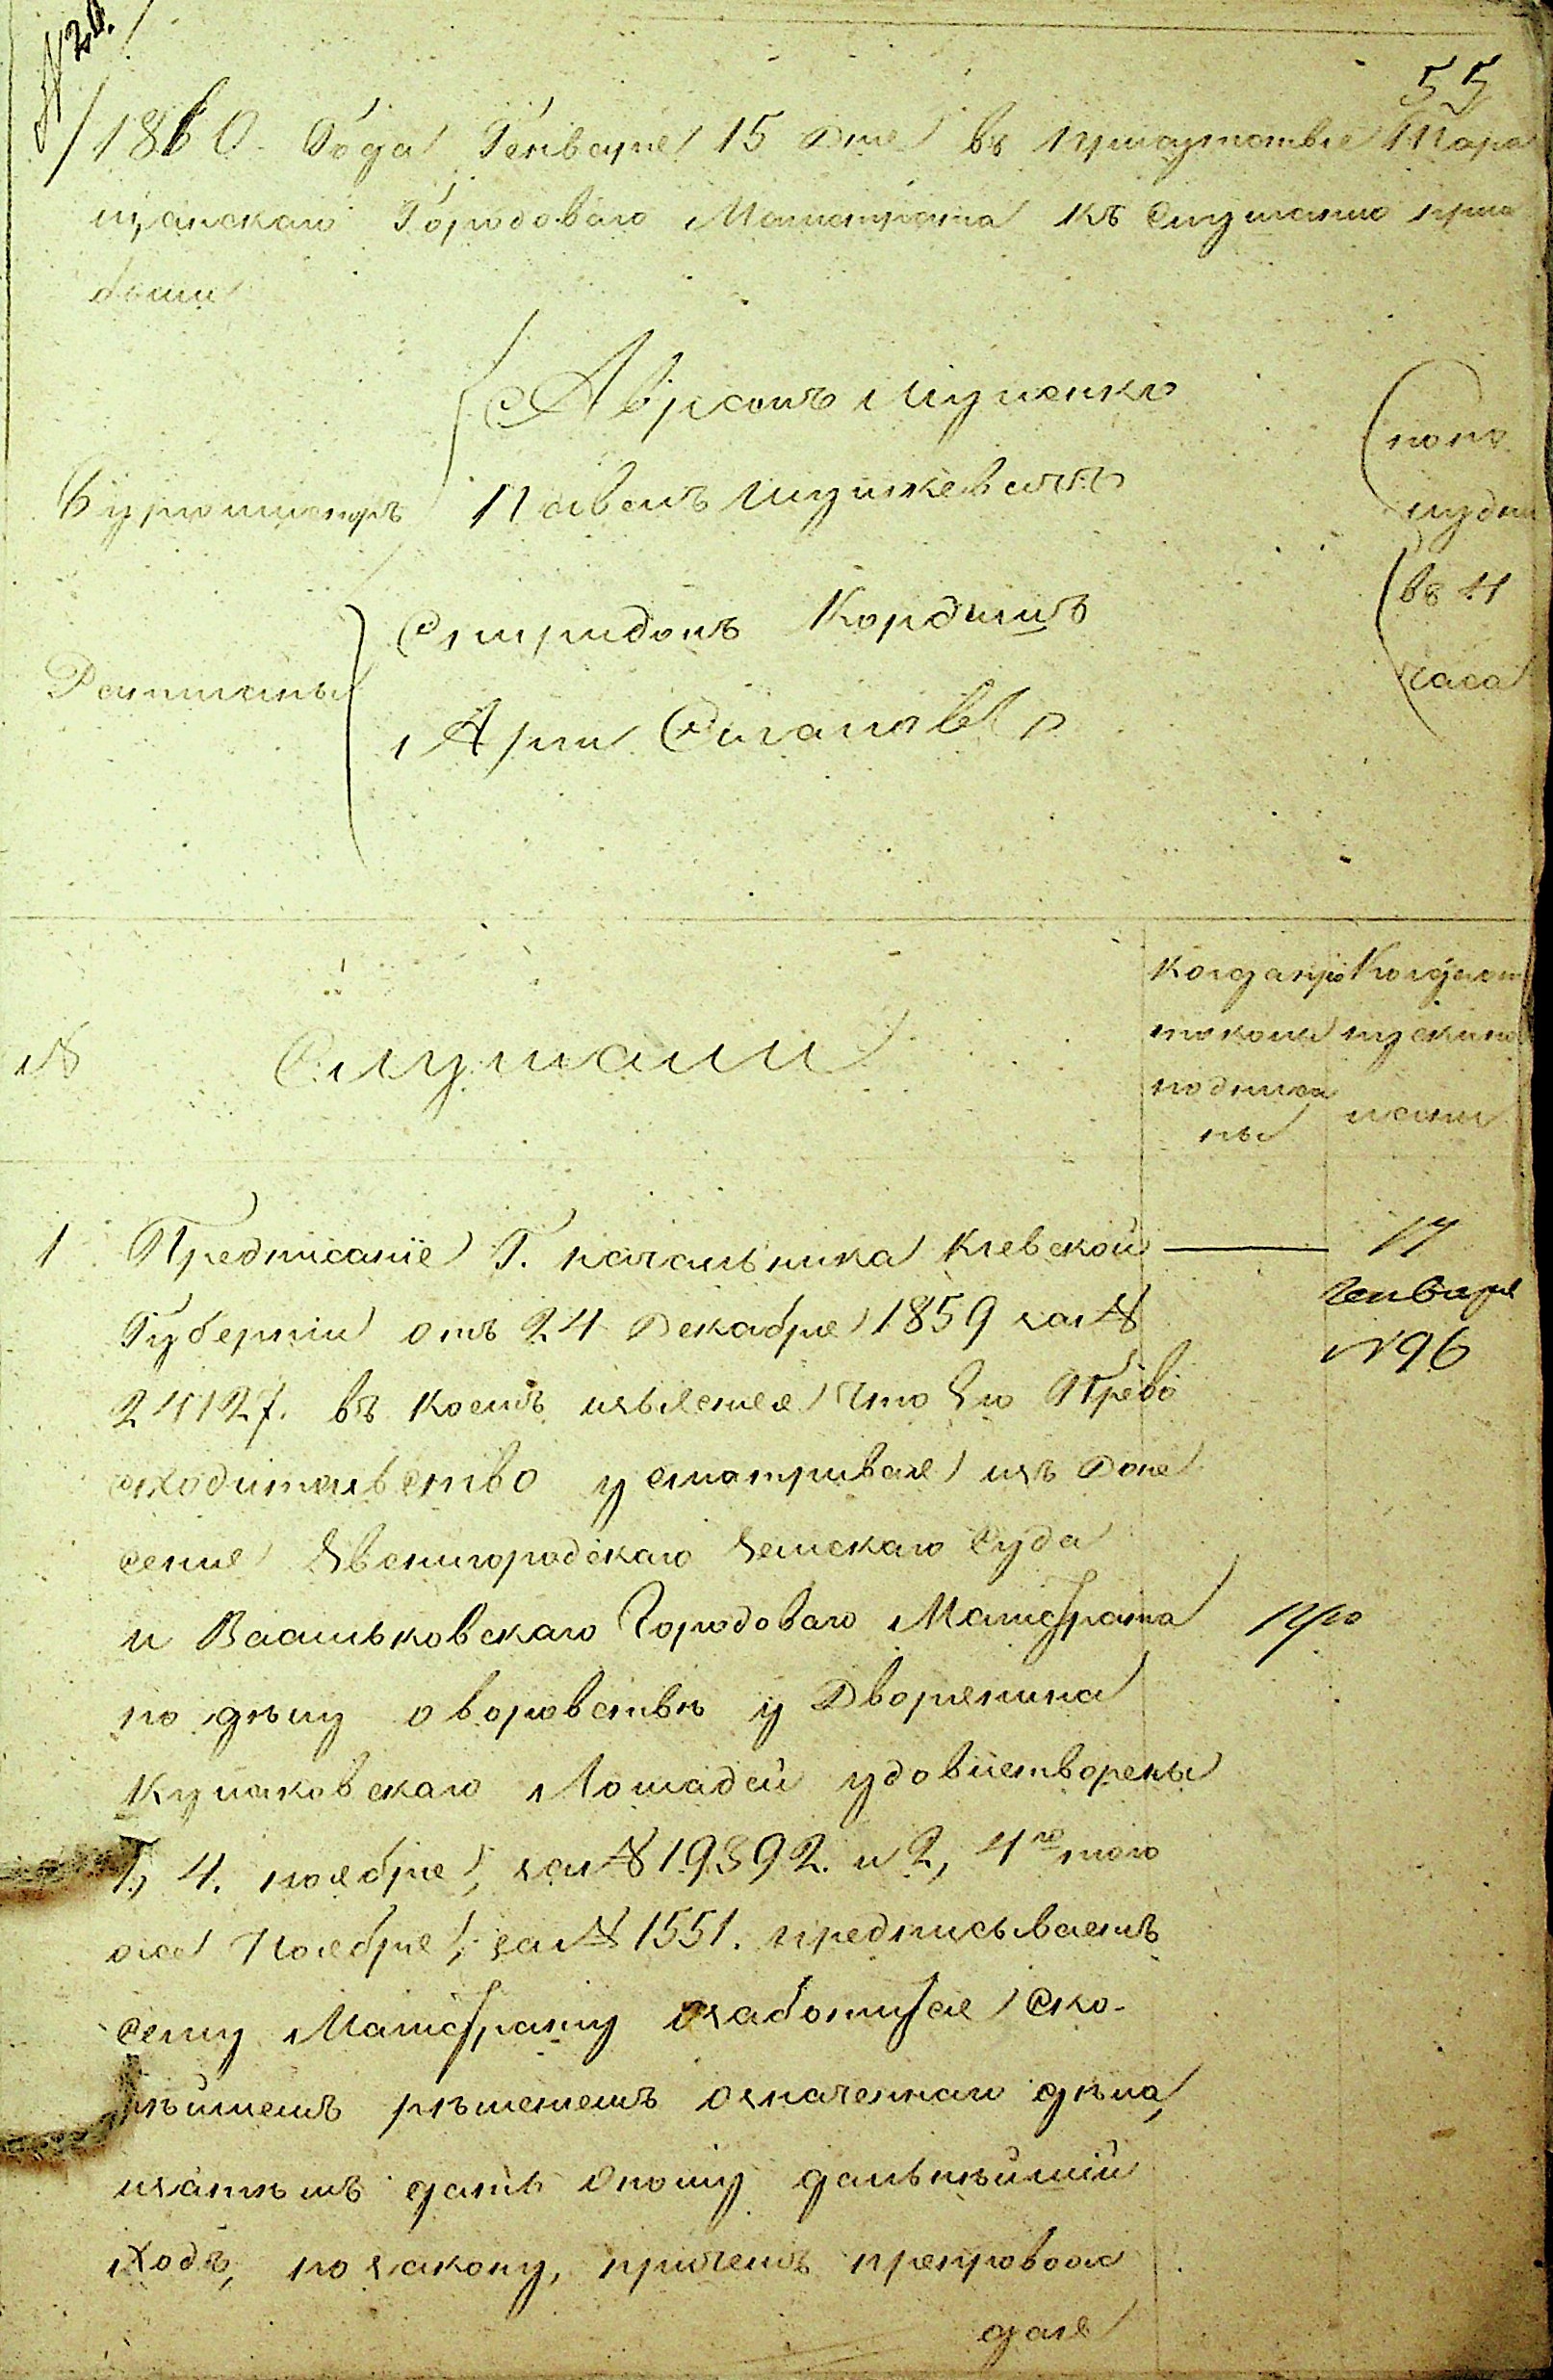 № 20.
55
1860 Года Генваря 15 Дня въ присутствіе Тара
щанскаго Городоваго Магистрата къ Слушанію при
были
Аврамъ
Бургомистръ Павелъ
попо
лудни
Спиридонъ Кордышъ
въ 4
Ратманы
часа
№ Слушали
Когда про
токолы
подписа
ны
Когда от
пуск
1 Предписаніе Г. начальника Кіевской — 17
Губерніи отъ 24 Декабря 1859 за № Генваря
24127. въ коемъ изъяснея что Его Прево № 96
сходительство усматривая изъ Доне
сенія Звенигородскаго Земскаго Суда
и Васильковскаго Городоваго Магистрата
по дѣлу о воровствѣ у Дворянина
Лошадей удовлетворены
1, 4. ноября, за № 19392. и 2, 4го того
же Ноября, за № 1551. предписываетъ
сему Магистрату озаботится ско-
рѣйшемъ рѣшеніемъ означеннаго дѣла,
и затѣмъ дать оному дальнѣйшій
Ходъ, по закону, причемъ препровож
дая